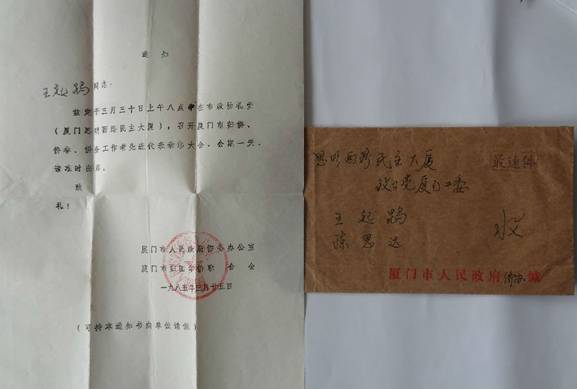 通知
王起鹍同志：
兹定于三月三十日上午八点半在市政协礼堂
（厦门思明西路民主大厦），召开厦门市归侨、
侨眷、侨务工作者先进代表表彰大会，会期一天。
请准时出席。
致
礼！
厦门市人民政府侨务办公室
厦门市归国华侨联合会
一九八五年三月廿五日
（可持本通知书向单位请假）
思明西路民主大厦
致公党厦门工委
王起鹍
陈思达
收
厦门市人民政府侨办缄